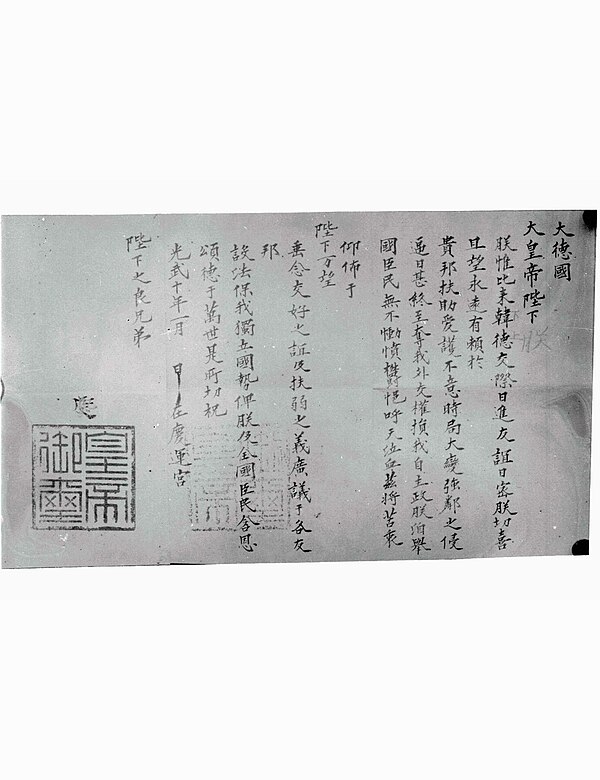 大德國
大皇帝陛下
朕惟比来韓德交際日進友誼日密朕切喜
且望永遠有賴於
貴邦扶助愛護不意時局大變強鄰之侵
逼日甚終至奪我外交權損我自主政朕洎舉
國臣民無不慟憤欝悒呼天泣血茲將苦衷
仰佈于
陛下万望
垂念交好之誼及扶弱之義廣議于各友
邦
設法保我獨立國勢俾朕及全國臣民含恩
頌德于萬世是所切祝
光武十年一月 日在慶運宮
陛下之良兄弟
皇帝
御璽